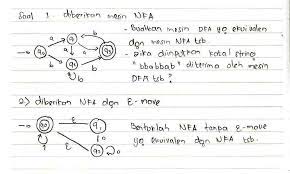 Soal 1. diberikan mesin NFA
- Buatkan mesin DFA yg ekuivalen
dgn mesin NFA tsb.
- Jika diinputkan kalal string
"bbabbab" diterima oleh mesin
DFA tsb?
q0 a q1 b q3
b a b
q2
b
2.) diberikan NFA dgn ε-move
q0 ε q1
ε
q2 0
Bentuklah NFA tanpa ε-move
yg ekuivalen dgn NFA tsb.